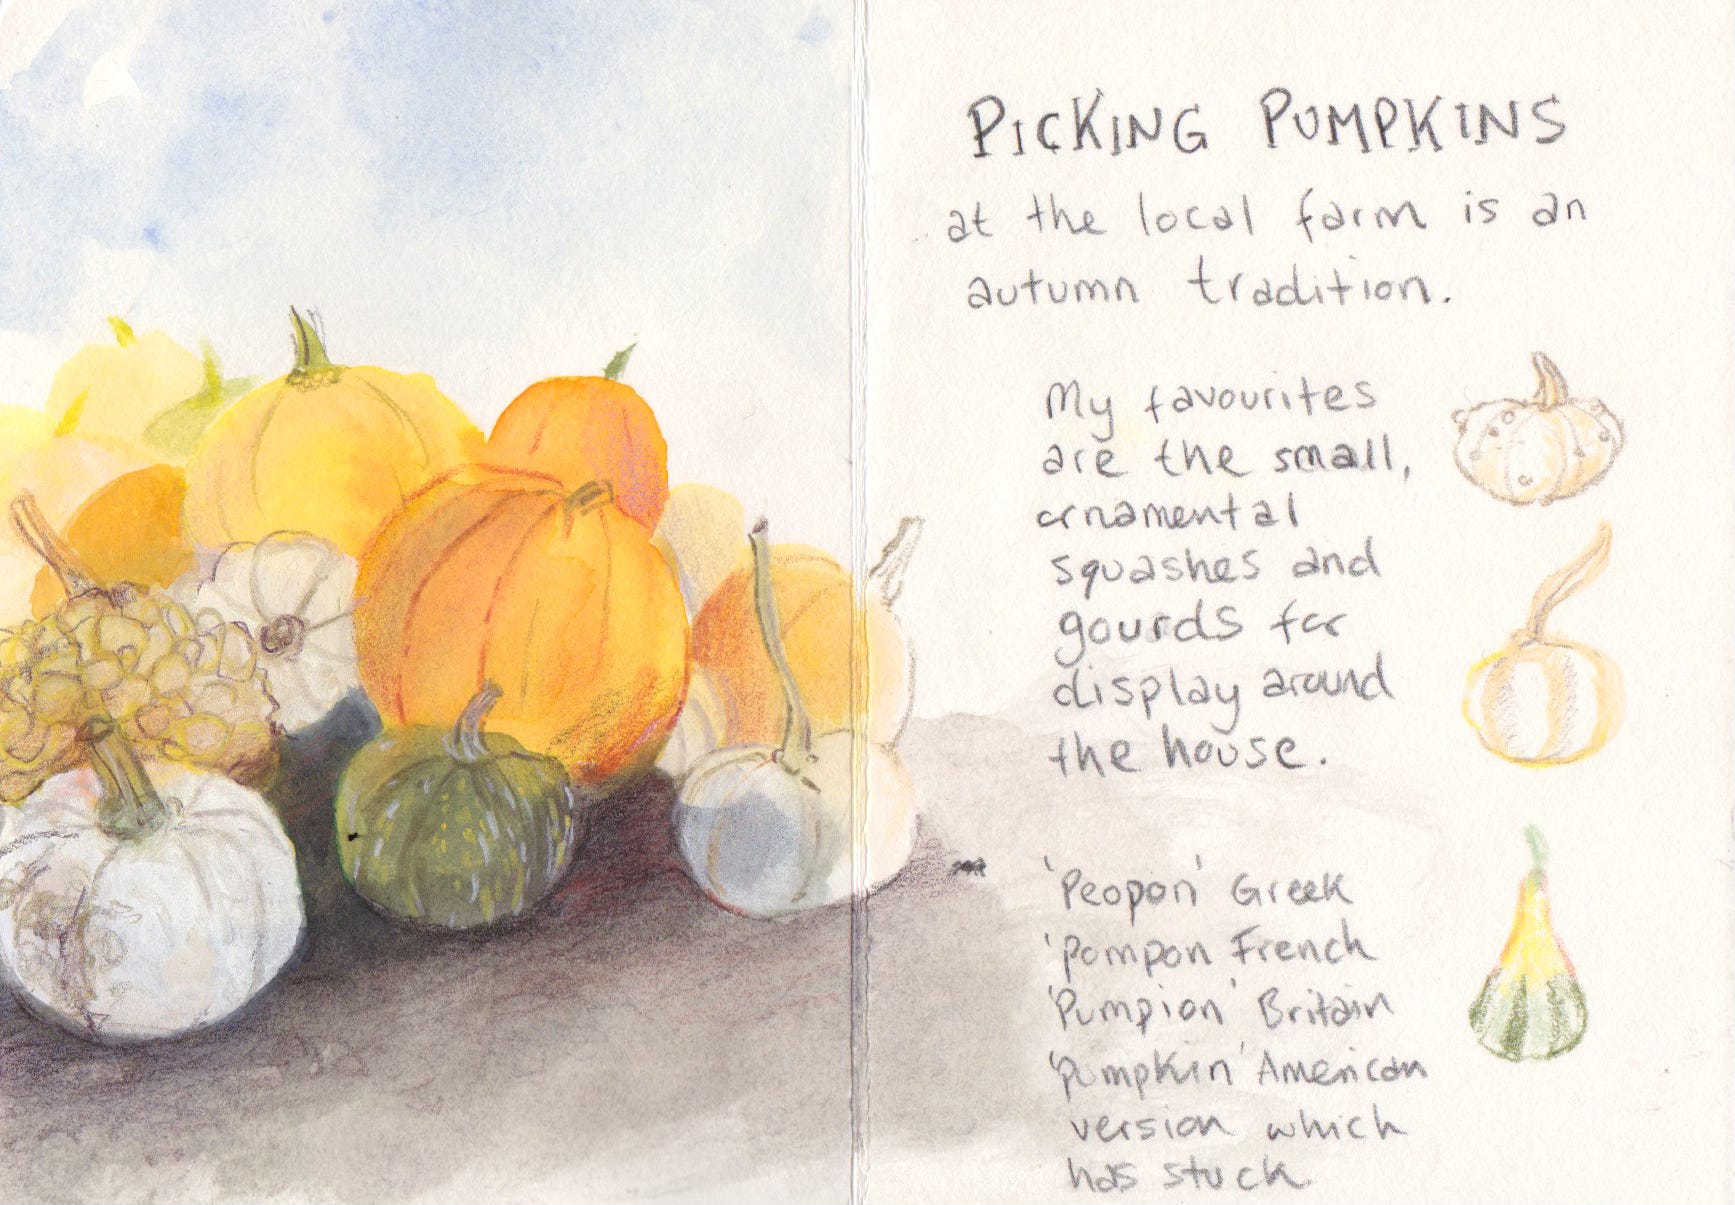 PICKING PUMPKINS
at the local farm is an
autumn tradition.
My favourites
are the small,
ornamental
squashes and
gourds for
display around
the house.
'Peopon' Greek
'pompon French
'Pumpion' Britain
'pumpkin' American
version which
has stuck.